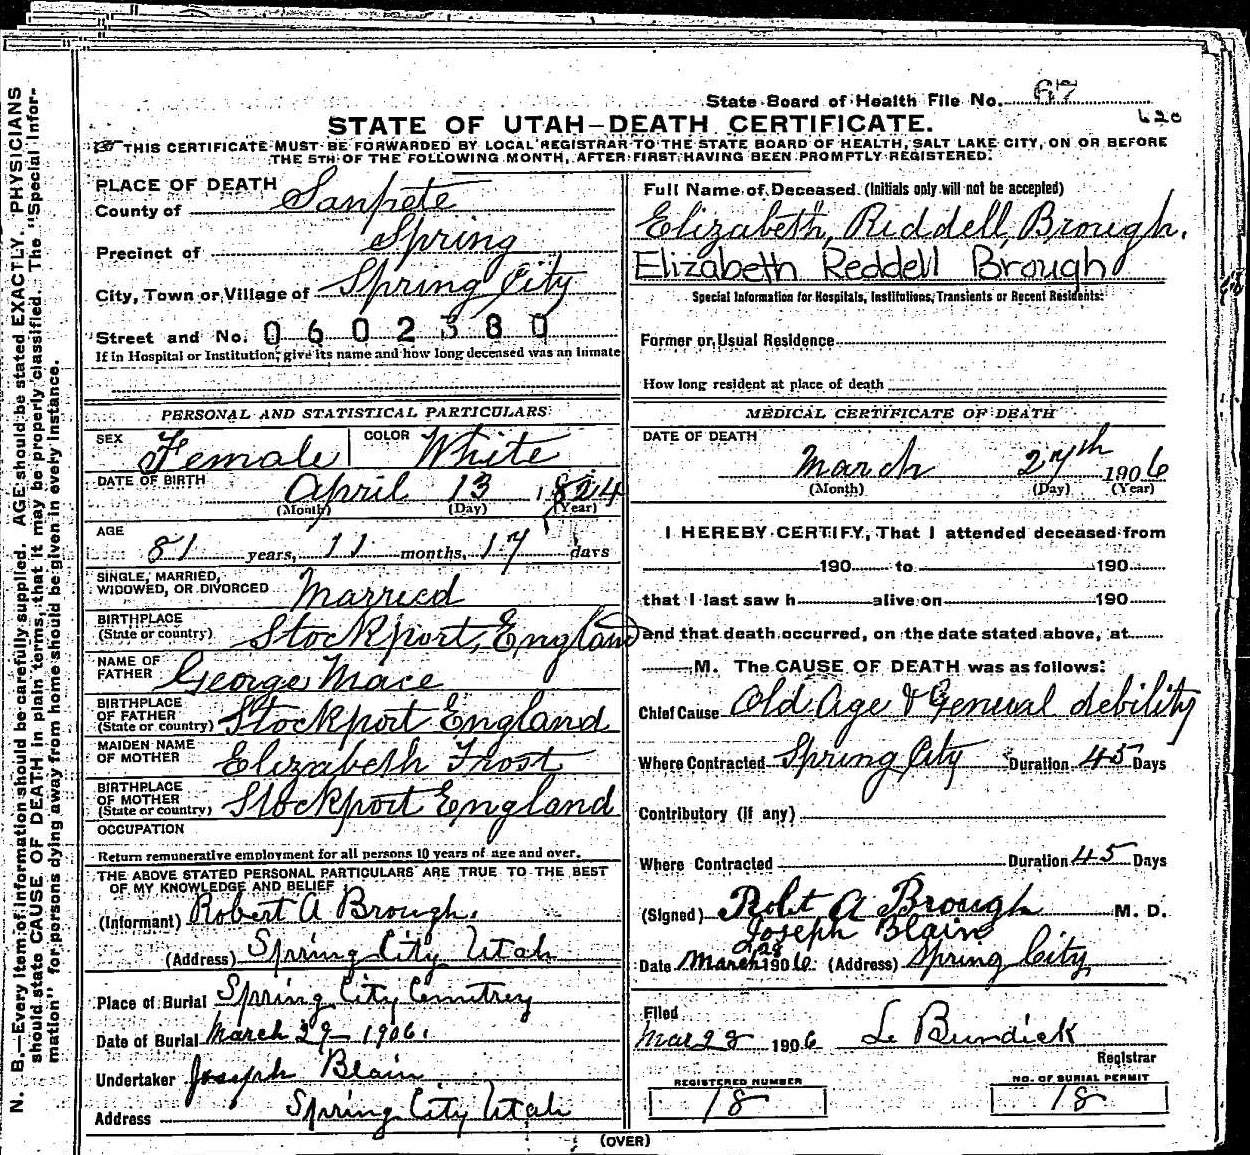 State Board of Health File No. 67
620
STATE OF UTAH—DEATH CERTIFICATE.
THIS CERTIFICATE MUST BE FORWARDED BY LOCAL REGISTRAR TO THE STATE BOARD OF HEALTH, SALT LAKE CITY, ON OR BEFORE
THE 5TH OF THE FOLLOWING MONTH, AFTER FIRST HAVING BEEN PROMPTLY REGISTERED.
N. B.—Every item of information should be carefully supplied. AGE should be stated EXACTLY. PHYSICIANS
should state CAUSE OF DEATH in plain terms, that it may be properly classified. The "Special Infor-
mation" for persons dying away from home should be given in every instance.
PLACE OF DEATH
County of Sanpete
Precinct of Spring
City, Town or Village of Spring City
Street and No. 0602380
If in Hospital or Institution, give its name and how long deceased was an inmate
PERSONAL AND STATISTICAL PARTICULARS
SEX Female COLOR White
DATE OF BIRTH April 13 1824
(Month) (Day) (Year)
AGE
81 years, 11 months, 17 days
SINGLE, MARRIED,
WIDOWED, OR DIVORCED Married
BIRTHPLACE
(State or country) Stockport, England
NAME OF
FATHER George Mace
BIRTHPLACE
OF FATHER
(State or country) Stockport England
MAIDEN NAME
OF MOTHER Elizabeth Frost
BIRTHPLACE
OF MOTHER
(State or country) Stockport England
OCCUPATION
Return remunerative employment for all persons 10 years of age and over.
THE ABOVE STATED PERSONAL PARTICULARS ARE TRUE TO THE BEST
OF MY KNOWLEDGE AND BELIEF
(Informant) Robert A Brough.
(Address) Spring City Utah
Place of Burial Spring City Cemitrey
Date of Burial March 29 1906.
Undertaker Joseph Blain
Address Spring City Utah
Full Name of Deceased (Initials only will not be accepted)
Elizabeth Riddell Brough.
Elizabeth Reddell Brough
Special Information for Hospitals, Institutions, Transients or Recent Residents:
Former or Usual Residence
How long resident at place of death
MEDICAL CERTIFICATE OF DEATH
DATE OF DEATH
March 27th 1906
(Month) (Day) (Year)
I HEREBY CERTIFY, That I attended deceased from
190 to 190
that I last saw h alive on 190
and that death occurred, on the date stated above, at
M. The CAUSE OF DEATH was as follows:
Chief Cause Old Age & General debility
Where Contracted Spring City Duration 45 Days
Contributory (if any)
Where Contracted Duration 45 Days
(Signed) Robt A Brough M. D.
Joseph Blain
Date March 28 1906 (Address) Spring City
Filed
Mar 28 1906 L Burdick
Registrar
REGISTERED NUMBER NO. OF BURIAL PERMIT
18 18
(OVER)